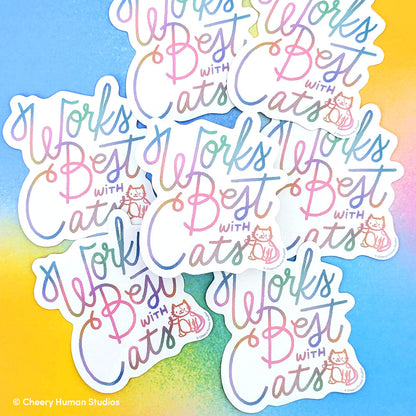 Works
Best
with
Cats
Works
Best
with
Cats
Works
Best
with
Cats
Works
Best
with
Cats
Works
Best
with
Cats
Works
Best
with
Cats
Works
Best
with
Cats
© Cheery Human Studios